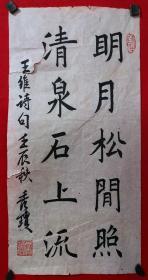 明月松間照
清泉石上流
王維诗句 壬辰秋